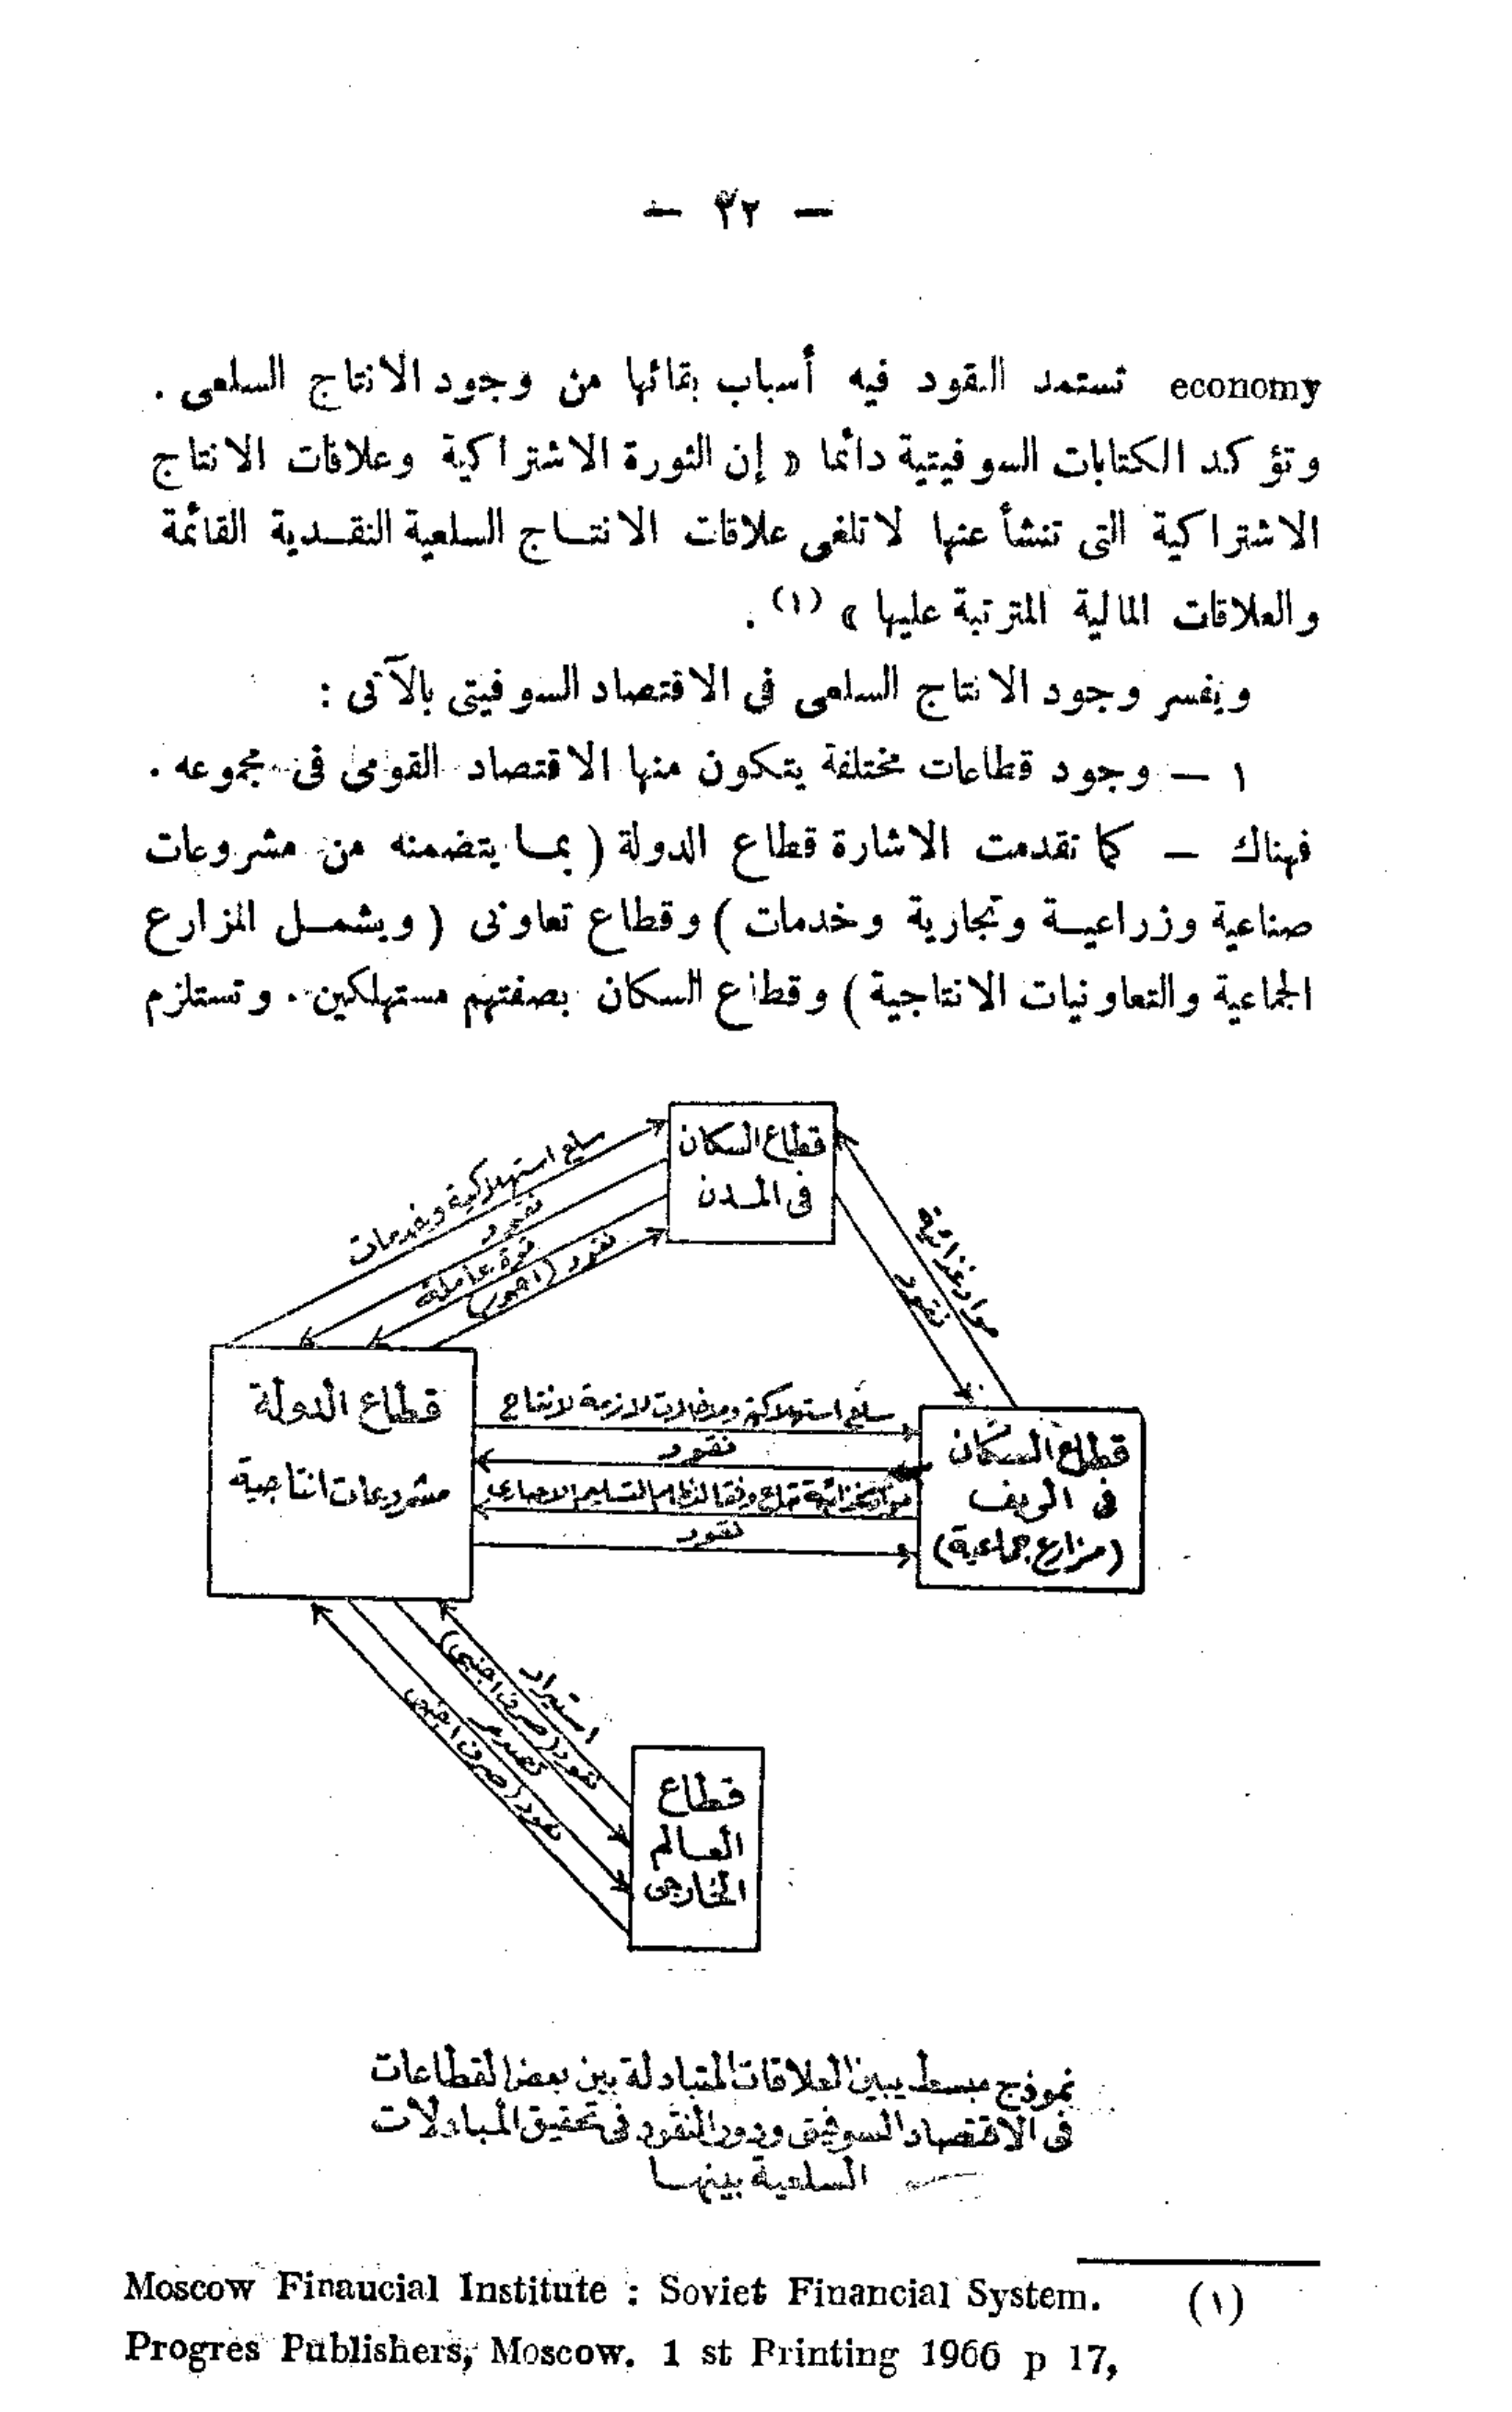 — ٣٢ —
economy تستمد النقود فيه أسباب بقائها من وجود الانتاج السلعى .
وتؤكد الكتابات السوفيتية دائما « إن الثورة الاشتراكية وعلاقات الانتاج
الاشتراكية التى تنشأ عنها لا تلغى علاقات الانتـاج السلعية النقـدية القائمة
والعلاقات المالية المترتبة عليها » (١) .
ويفسر وجود الانتاج السلعى فى الاقتصاد السوفيتى بالآتى :
١ — وجود قطاعات مختلفة يتكون منها الاقتصاد القومى فى مجموعه .
فهناك — كما تقدمت الاشارة قطاع الدولة ( بمـا يتضمنه من مشروعات
صناعية وزراعيـة وتجارية وخدمات ) وقطاع تعاونى ( ويشمـل المزارع
الجماعية والتعاونيات الانتاجية ) وقطاع السكان بصفتهم مستهلكين . وتستلزم
قطاع السكان
فى المـدن
سلع استهلاكية وخدمات
نقود
قوة عاملة
نقود (اجور)
مواد غذائية
نقود
قطاع الدولة
مشروعات انتاجية
سلع استهلاكية ومدخلات لازمة لانتاج
نقود
مواد غذائية تباع وفقا لنظام التسليم الاجبارى
نقود
قطاع السكان
فى الريف
(مزارع جماعية)
استيراد
نقود (صرف اجنبى)
تصدير
نقود (صرف اجنبى)
قطاع
العـالم
الخارجى
نموذج مبسط يبين العلاقات المتبادلة بين بعض القطاعات
فى الاقتصاد السوفيتى ودور النقود فى تحقيق المبادلات
السلعية بينهـا
Moscow Finaucial Institute : Soviet Financial System. (١)
Progres Publishers, Moscow. 1 st Printing 1966 p 17,